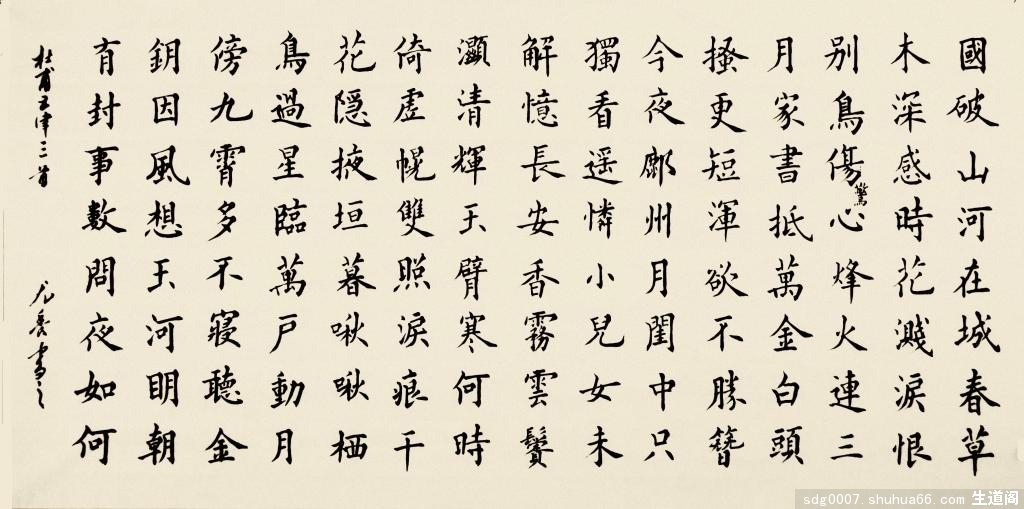 國破山河在城春草
木深感時花濺淚恨
别鳥傷驚心烽火連三
月家書抵萬金白頭
搔更短渾欲不勝簪
今夜鄜州月閨中只
獨看遥憐小兒女未
解憶長安香霧雲鬢
灝清輝玉臂寒何時
倚虚幌雙照淚痕干
花隱掖垣暮啾啾栖
鳥過星臨萬户動月
傍九霄多不寢聽金
鈅因風想玉河明朝
有封事數問夜如何
杜甫五律三首
書之
sdg0007.shuhua66.com 生道阁